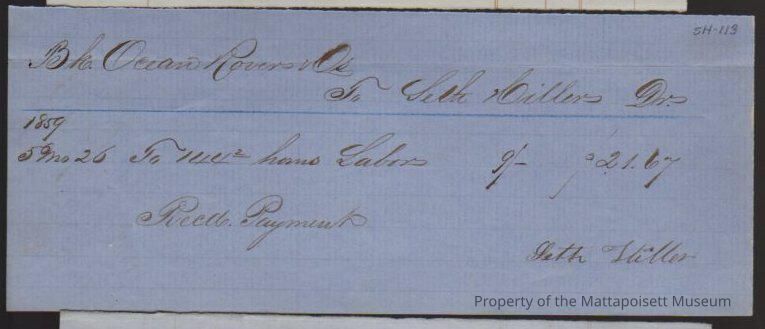 SH-113
Bk. Ocean Rovers & Os
To Seth Hillers Drs
1859
5 Mo 26 To 144² hours Labors 9/- $21.67
Recd. Payment
Seth Hiller
Property of the Mattapoisett Museum